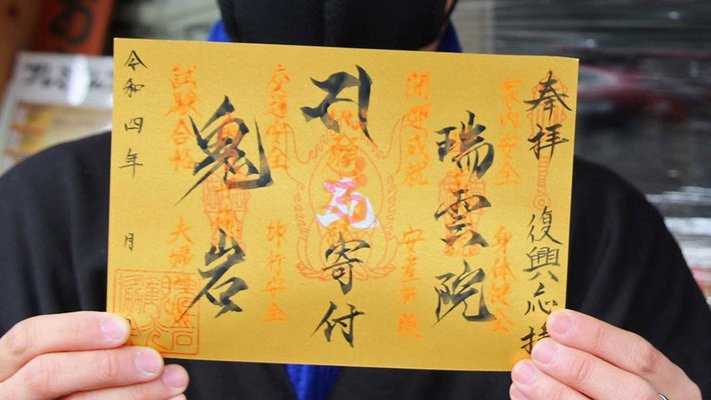 奉拝 復興応援
家内安全 身体健全
瑞雲院
開運成就 安産祈願
寄付
交通安全 旅行安全
鬼岩
試験合格 夫婦
令和四年 月